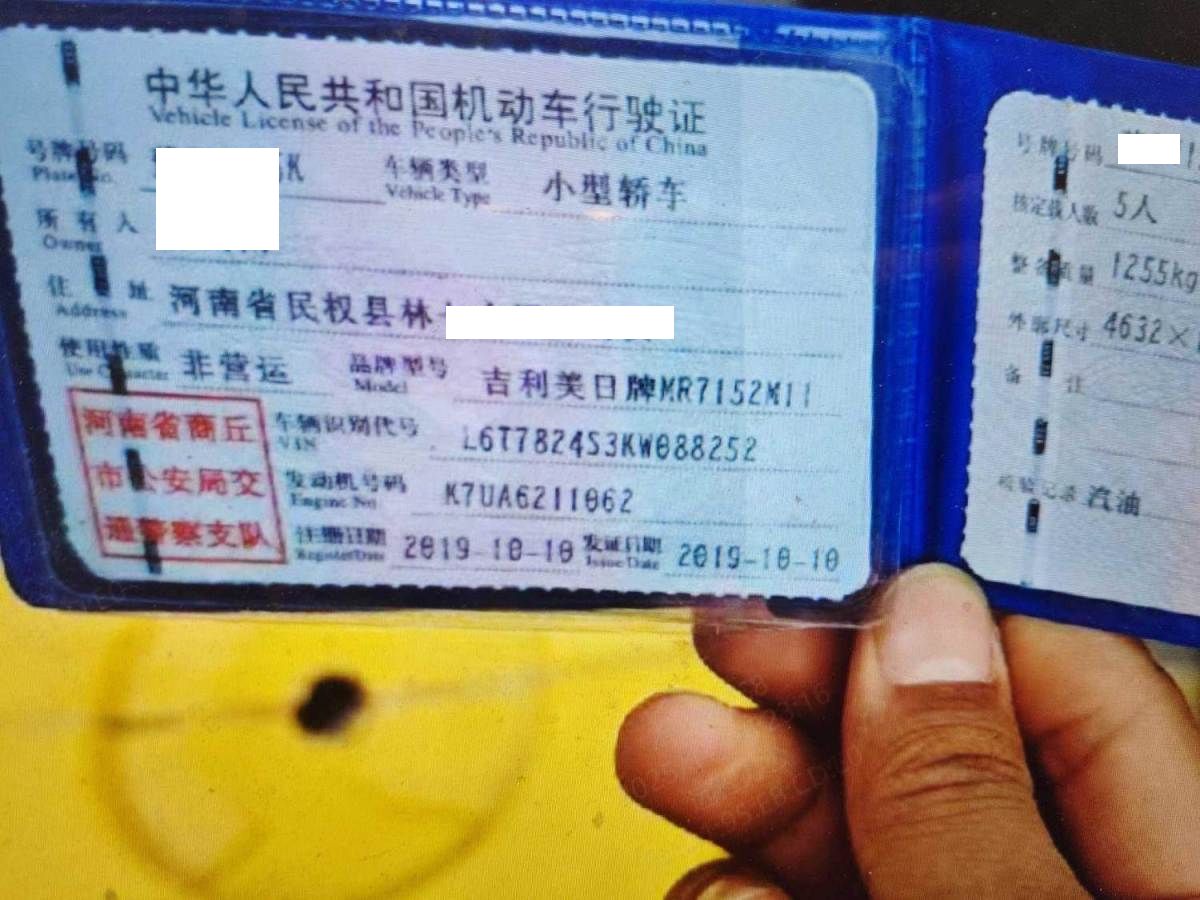 中华人民共和国机动车行驶证
Vehicle License of the People's Republic of China
号牌号码 K
Plate No.
车辆类型 小型轿车
Vehicle Type
所有人
Owner
住址 河南省民权县林
Address
使用性质 非营运
Use Character
品牌型号 吉利美日牌MR7152M11
Model
河南省商丘
市公安局交
通警察支队
车辆识别代号 L6T7824S3KW088252
VIN
发动机号码 K7UA6211062
Engine No.
注册日期 2019-10-10
Register Date
发证日期 2019-10-10
Issue Date
号牌号码
核定载人数 5人
整备质量 1255kg
外廓尺寸 4632×
备注
检验记录 汽油